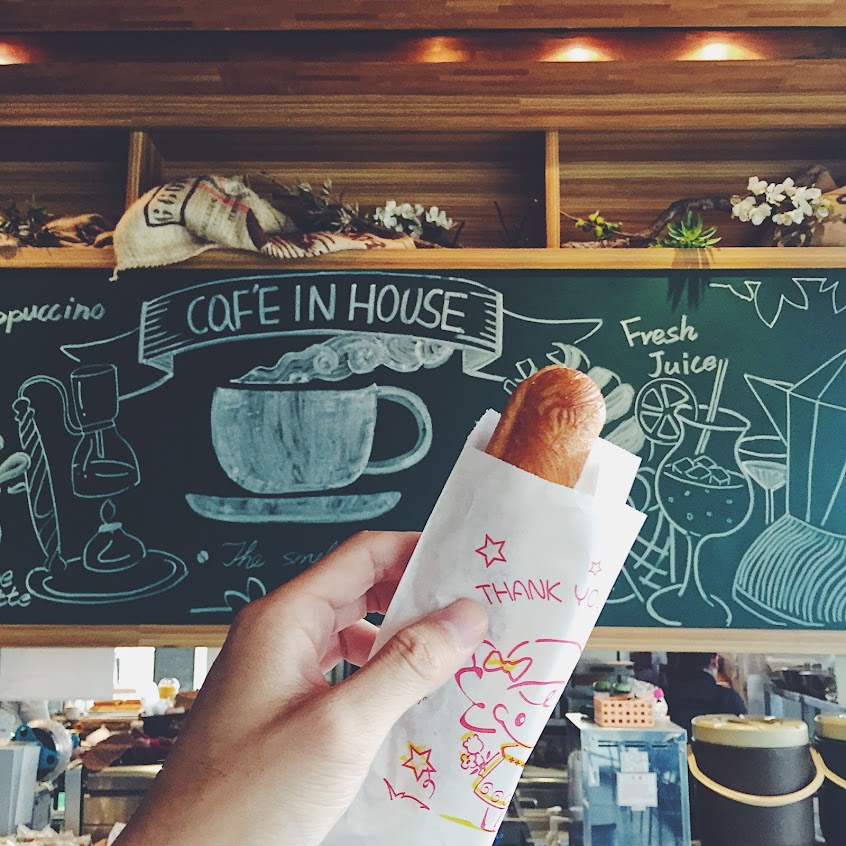 ppuccino
CAF'E IN HOUSE
Fresh
Juice
The
THANK YO